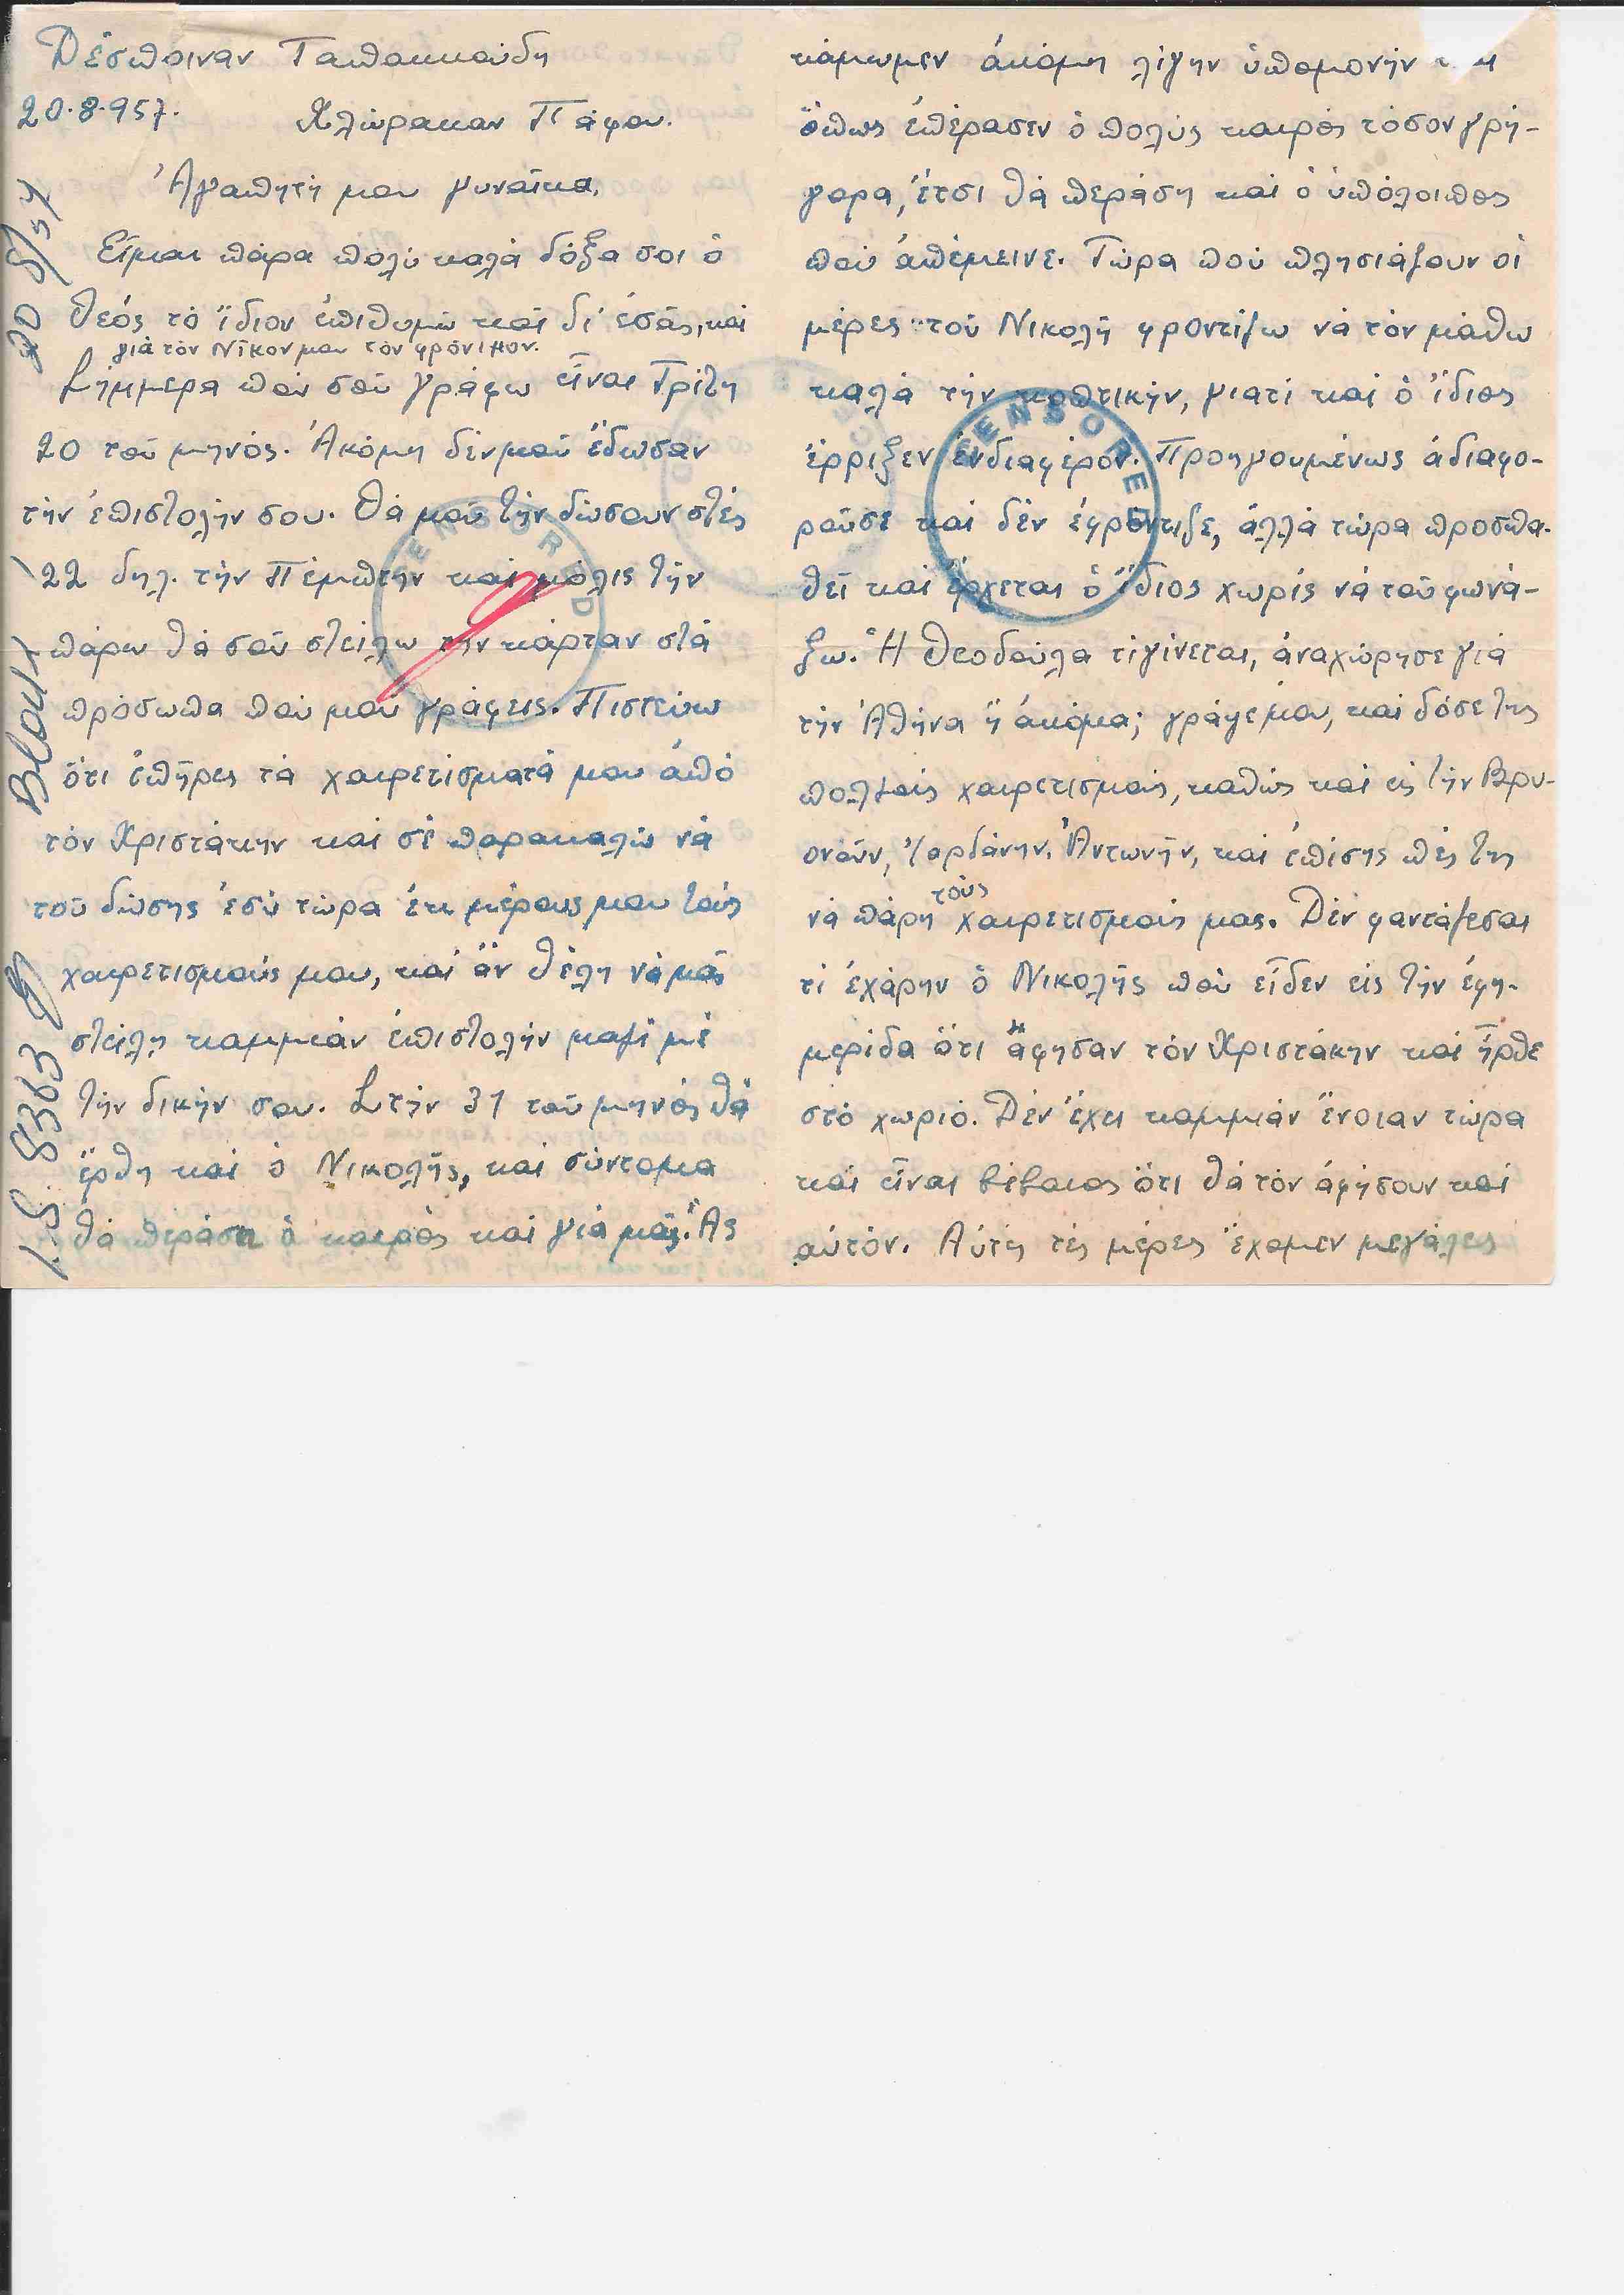 Δέσποιναν Ταπακκούδη
20.8.957. Χλώρακαν Πάφου.
Ἀγαπητή μου γυναῖκα,
Εἶμαι πάρα πολύ καλά δόξα σοι ὁ
Θεός τό ἴδιον ἐπιθυμῶ καί δι' ἐσᾶς, καί
γιά τόν Νῖκον μου τόν φρόνιμον.
Σήμμερα πού σοῦ γράφω εἶναι Τρίτη
20 τοῦ μηνός. Ἀκόμη δέν μοῦ ἔδωσαν
τήν ἐπιστολήν σου. Θά μοῦ τήν δώσουν στές
22 δηλ. τήν Πέμπτην καί μόλις τήν
πάρω θά σοῦ στείλω την κάρταν στά
πρόσωπα πού μοῦ γράφεις. Πιστεύω
ὅτι ἐπῆρες τά χαιρετίσματά μου ἀπό
τόν Χριστάκην καί σέ παρακαλῶ νά
τοῦ δώσης ἐσύ τώρα ἐκ μέρους μου τούς
χαιρετισμούς μου, καί ἄν θέλη νά μᾶς
στείλη καμμιάν ἐπιστολήν μαζί μέ
τήν δικήν σου. Στήν 31 τοῦ μηνός θά
ἔρθη καί ὁ Νικολῆς, καί σύντομα
θά περάση ὁ καιρός καί γιά μᾶς. Ἄς
κάμωμεν ἀκόμη λίγην ὑπομονήν
ὅπως ἐπέρασεν ὁ πολύς καιρός τόσον γρή-
γορα, ἔτσι θά περάση καί ὁ ὑπόλοιπος
πού ἀπέμεινε. Τώρα πού πλησιάζουν οἱ
μέρες τοῦ Νικολῆ φροντίζω νά τόν μάθω
καλά τήν κοπτικήν, γιατί καί ὁ ἴδιος
ἔρριξεν ἐνδιαφέρον. Προηγουμένως ἀδιαφο-
ροῦσε καί δέν ἐφρόντιζε, ἀλλά τώρα προσπα-
θεῖ καί ἔρχεται ὁ ἴδιος χωρίς νά τοῦ φωνά-
ξω. Ἡ Θεοδούλα τί γίνεται, ἀναχώρησε γιά
τήν Ἀθήνα ἤ ἀκόμα; γράψε μου, καί δόσε της
πολλούς χαιρετισμούς, καθώς καί εἰς τήν Βρυ-
ονοῦν, Ἰορδάνην, Ἀντωνῆν, καί ἐπίσης πές της
νά πάρη τούς χαιρετισμούς μας. Δέν φαντάζεσαι
τί ἐχάρην ὁ Νικολῆς πού εἶδεν εἰς τήν ἐφη-
μερίδα ὅτι ἄφησαν τόν Χριστάκην καί ἦρθε
στό χωριό. Δέν ἔχει καμμιάν ἔνοιαν τώρα
καί εἶναι βέβαιος ὅτι θά τόν ἀφήσουν καί
αὐτόν. Αὐτές τές μέρες ἔχομεν μεγάλες
CENSORED
CENSORED
20 8/57